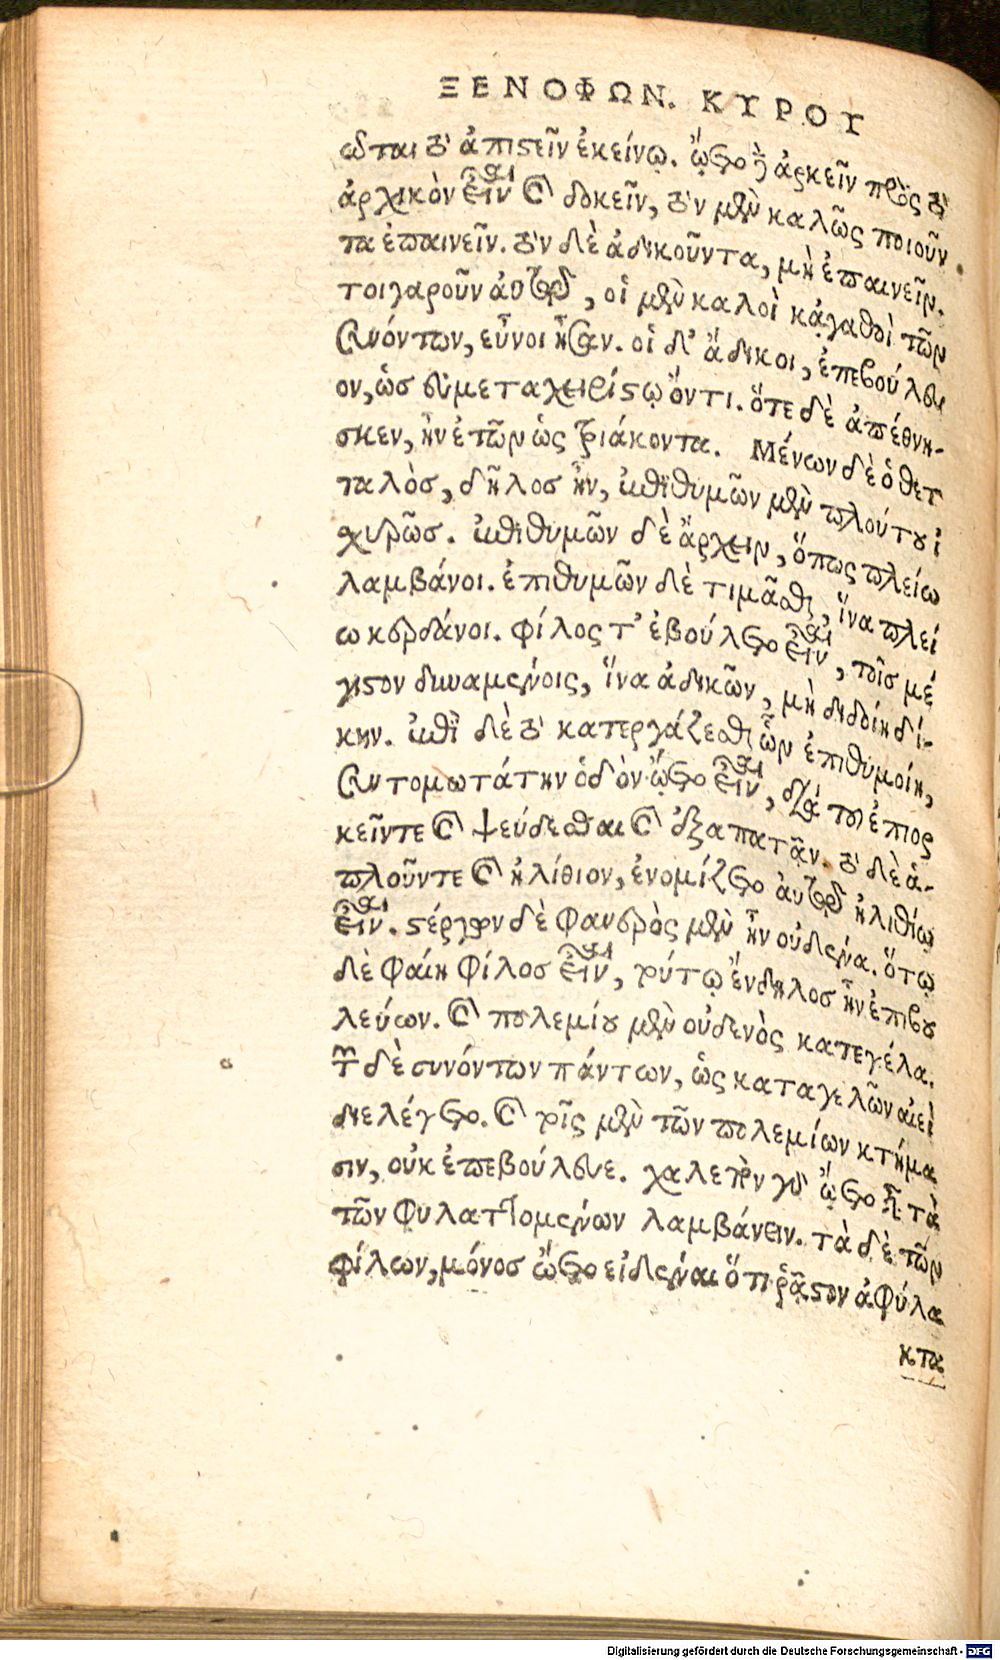 ΞΕΝΟΦΩΝ. ΚΥΡΟΥ
ῶται τὸ ἀπιστεῖν ἐκείνῳ. ᾤετο δὲ ἀρκεῖν πρὸς τὸ
ἀρχικὸν εἶναι καὶ δοκεῖν, τὸν μὲν καλῶς ποιοῦν
τα ἐπαινεῖν. τὸν δὲ ἀδικοῦντα, μὴ ἐπαινεῖν.
τοιγαροῦν αὐτῷ, οἱ μὲν καλοὶ κᾀγαθοὶ τῶν
συνόντων, εὖνοι ἦσαν. οἱ δ' ἄδικοι, ἐπεβούλευ
ον, ὡς εὐμεταχειρίστῳ ὄντι. ὅτε δὲ ἀπέθνη-
σκεν, ἦν ἐτῶν ὡς τριάκοντα. Μένων δὲ ὁ θετ
ταλὸς, δῆλος ἦν, ἐπιθυμῶν μὲν πλούτου ἰ
χυρῶς. ἐπιθυμῶν δὲ ἄρχειν, ὅπως πλείω
λαμβάνοι. ἐπιθυμῶν δὲ τιμᾶσθαι, ἵνα πλεί
ω κερδάνοι. φίλος τ' ἐβούλετο εἶναι, τοῖς μέ
γιστον δυναμένοις, ἵνα ἀδικῶν, μὴ διδοίη δί-
κην. ἐπὶ δὲ τὸ κατεργάζεσθαι ὧν ἐπιθυμοίη,
συντομωτάτην ὁδὸν ᾤετο εἶναι, διὰ τοῦ ἐπιορ
κεῖν τε καὶ ψεύδεσθαι καὶ ἐξαπατᾷν. τὸ δὲ ἁ-
πλοῦν τε καὶ ἠλίθιον, ἐνομίζετο αὐτῷ ἠλιθίῳ
εἶναι. στέργων δὲ φανερὸς μὲν ἦν οὐδένα. ὅτῳ
δὲ φαίη φίλος εἶναι, τούτῳ ἔνδηλος ἦν ἐπιβου
λεύων. καὶ πολεμίου μὲν οὐδενὸς κατεγέλα.
τῶν δὲ συνόντων πάντων, ὡς καταγελῶν αἰεὶ
διελέγετο. καὶ τοῖς μὲν τῶν πολεμίων κτήμα
σιν, οὐκ ἐπεβούλευε. χαλεπὸν γὰρ ᾤετο εἶναι τὰ
τῶν φυλαττομένων λαμβάνειν. τὰ δὲ τῶν
φίλων, μόνος ᾤετο εἰδέναι ὅτι ῥᾷστον ἀφύλα
κτα
Digitalisierung gefördert durch die Deutsche Forschungsgemeinschaft - DFG